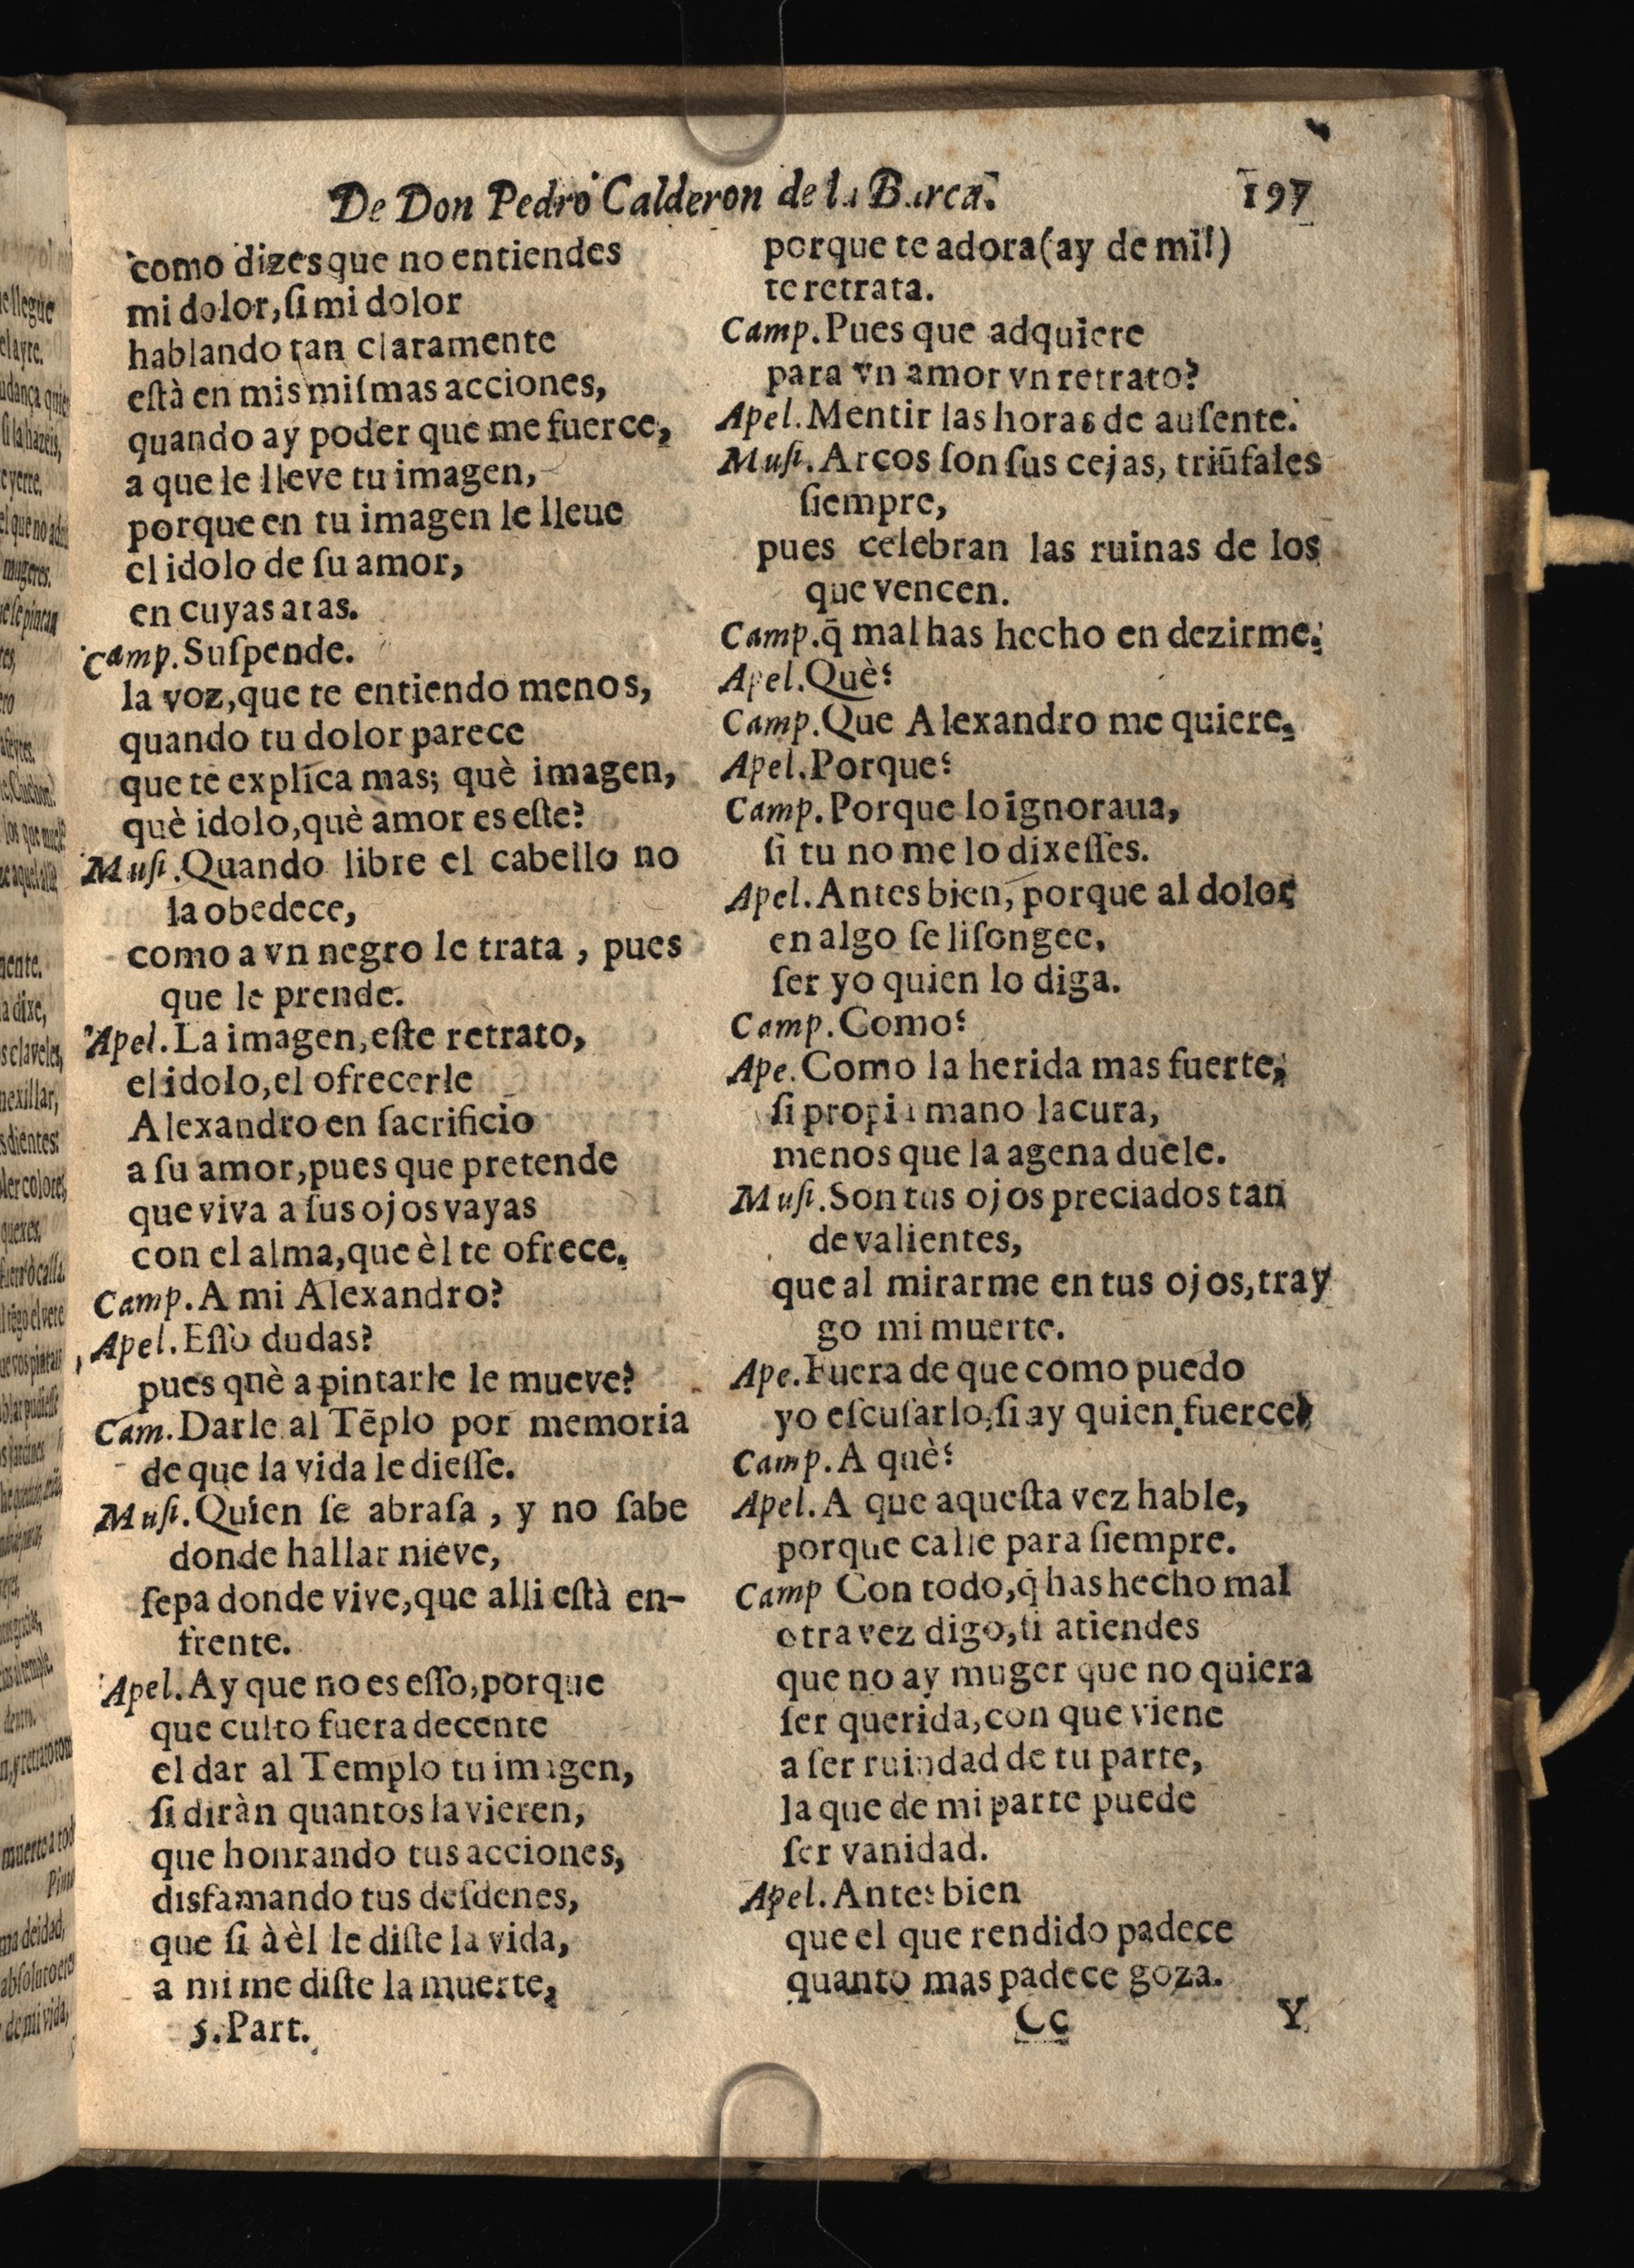 De Don Pedro Calderon de la Barca.
197
como dizes que no entiendes
mi dolor, ſi mi dolor
hablando tan claramente
eſtà en mis miſmas acciones,
quando ay poder que me fuerce,
a que le lleve tu imagen,
porque en tu imagen le lleue
el idolo de ſu amor,
en cuyas aras.
Camp. Suſpende.
la voz, que te entiendo menos,
quando tu dolor parece
que te explica mas; què imagen,
què idolo, què amor es eſte?
Muſi. Quando libre el cabello no
la obedece,
como a vn negro le trata, pues
que le prende.
Apel. La imagen, eſte retrato,
el idolo, el ofrecerle
Alexandro en ſacrificio
a ſu amor, pues que pretende
que viva a ſus ojos vayas
con el alma, que èl te ofrece.
Camp. A mi Alexandro?
Apel. Eſſo dudas?
pues què a pintarle le mueve?
Cam. Darle al Tẽplo por memoria
de que la vida le dieſſe.
Muſi. Quien ſe abraſa, y no ſabe
donde hallar nieve,
ſepa donde vive, que alli eſtà en-
frente.
Apel. Ay que no es eſſo, porque
que culto fuera decente
el dar al Templo tu imagen,
ſi diràn quantos la vieren,
que honrando tus acciones,
disfamando tus deſdenes,
que ſi à èl le diſte la vida,
a mi me diſte la muerte,
5. Part.
porque te adora (ay de mi!)
te retrata.
Camp. Pues que adquiere
para vn amor vn retrato?
Apel. Mentir las horas de auſente.
Muſi. Arcos ſon ſus cejas, triũfales
ſiempre,
pues celebran las ruinas de los
que vencen.
Camp. q̃ mal has hecho en dezirme.
Apel. Què?
Camp. Que Alexandro me quiere.
Apel. Porque?
Camp. Porque lo ignoraua,
ſi tu no me lo dixeſſes.
Apel. Antes bien, porque al dolor
en algo ſe liſongee,
ſer yo quien lo diga.
Camp. Como?
Ape. Como la herida mas fuerte,
ſi propia mano la cura,
menos que la agena duele.
Muſi. Son tus ojos preciados tan
de valientes,
que al mirarme en tus ojos, tray
go mi muerte.
Ape. Fuera de que como puedo
yo eſcuſarlo, ſi ay quien fuerce?
Camp. A què?
Apel. A que aqueſta vez hable,
porque calle para ſiempre.
Camp Con todo, q̃ has hecho mal
otra vez digo, ſi atiendes
que no ay muger que no quiera
ſer querida, con que viene
a ſer ruindad de tu parte,
la que de mi parte puede
ſer vanidad.
Apel. Antes bien
que el que rendido padece
quanto mas padece goza.
Cc
Y